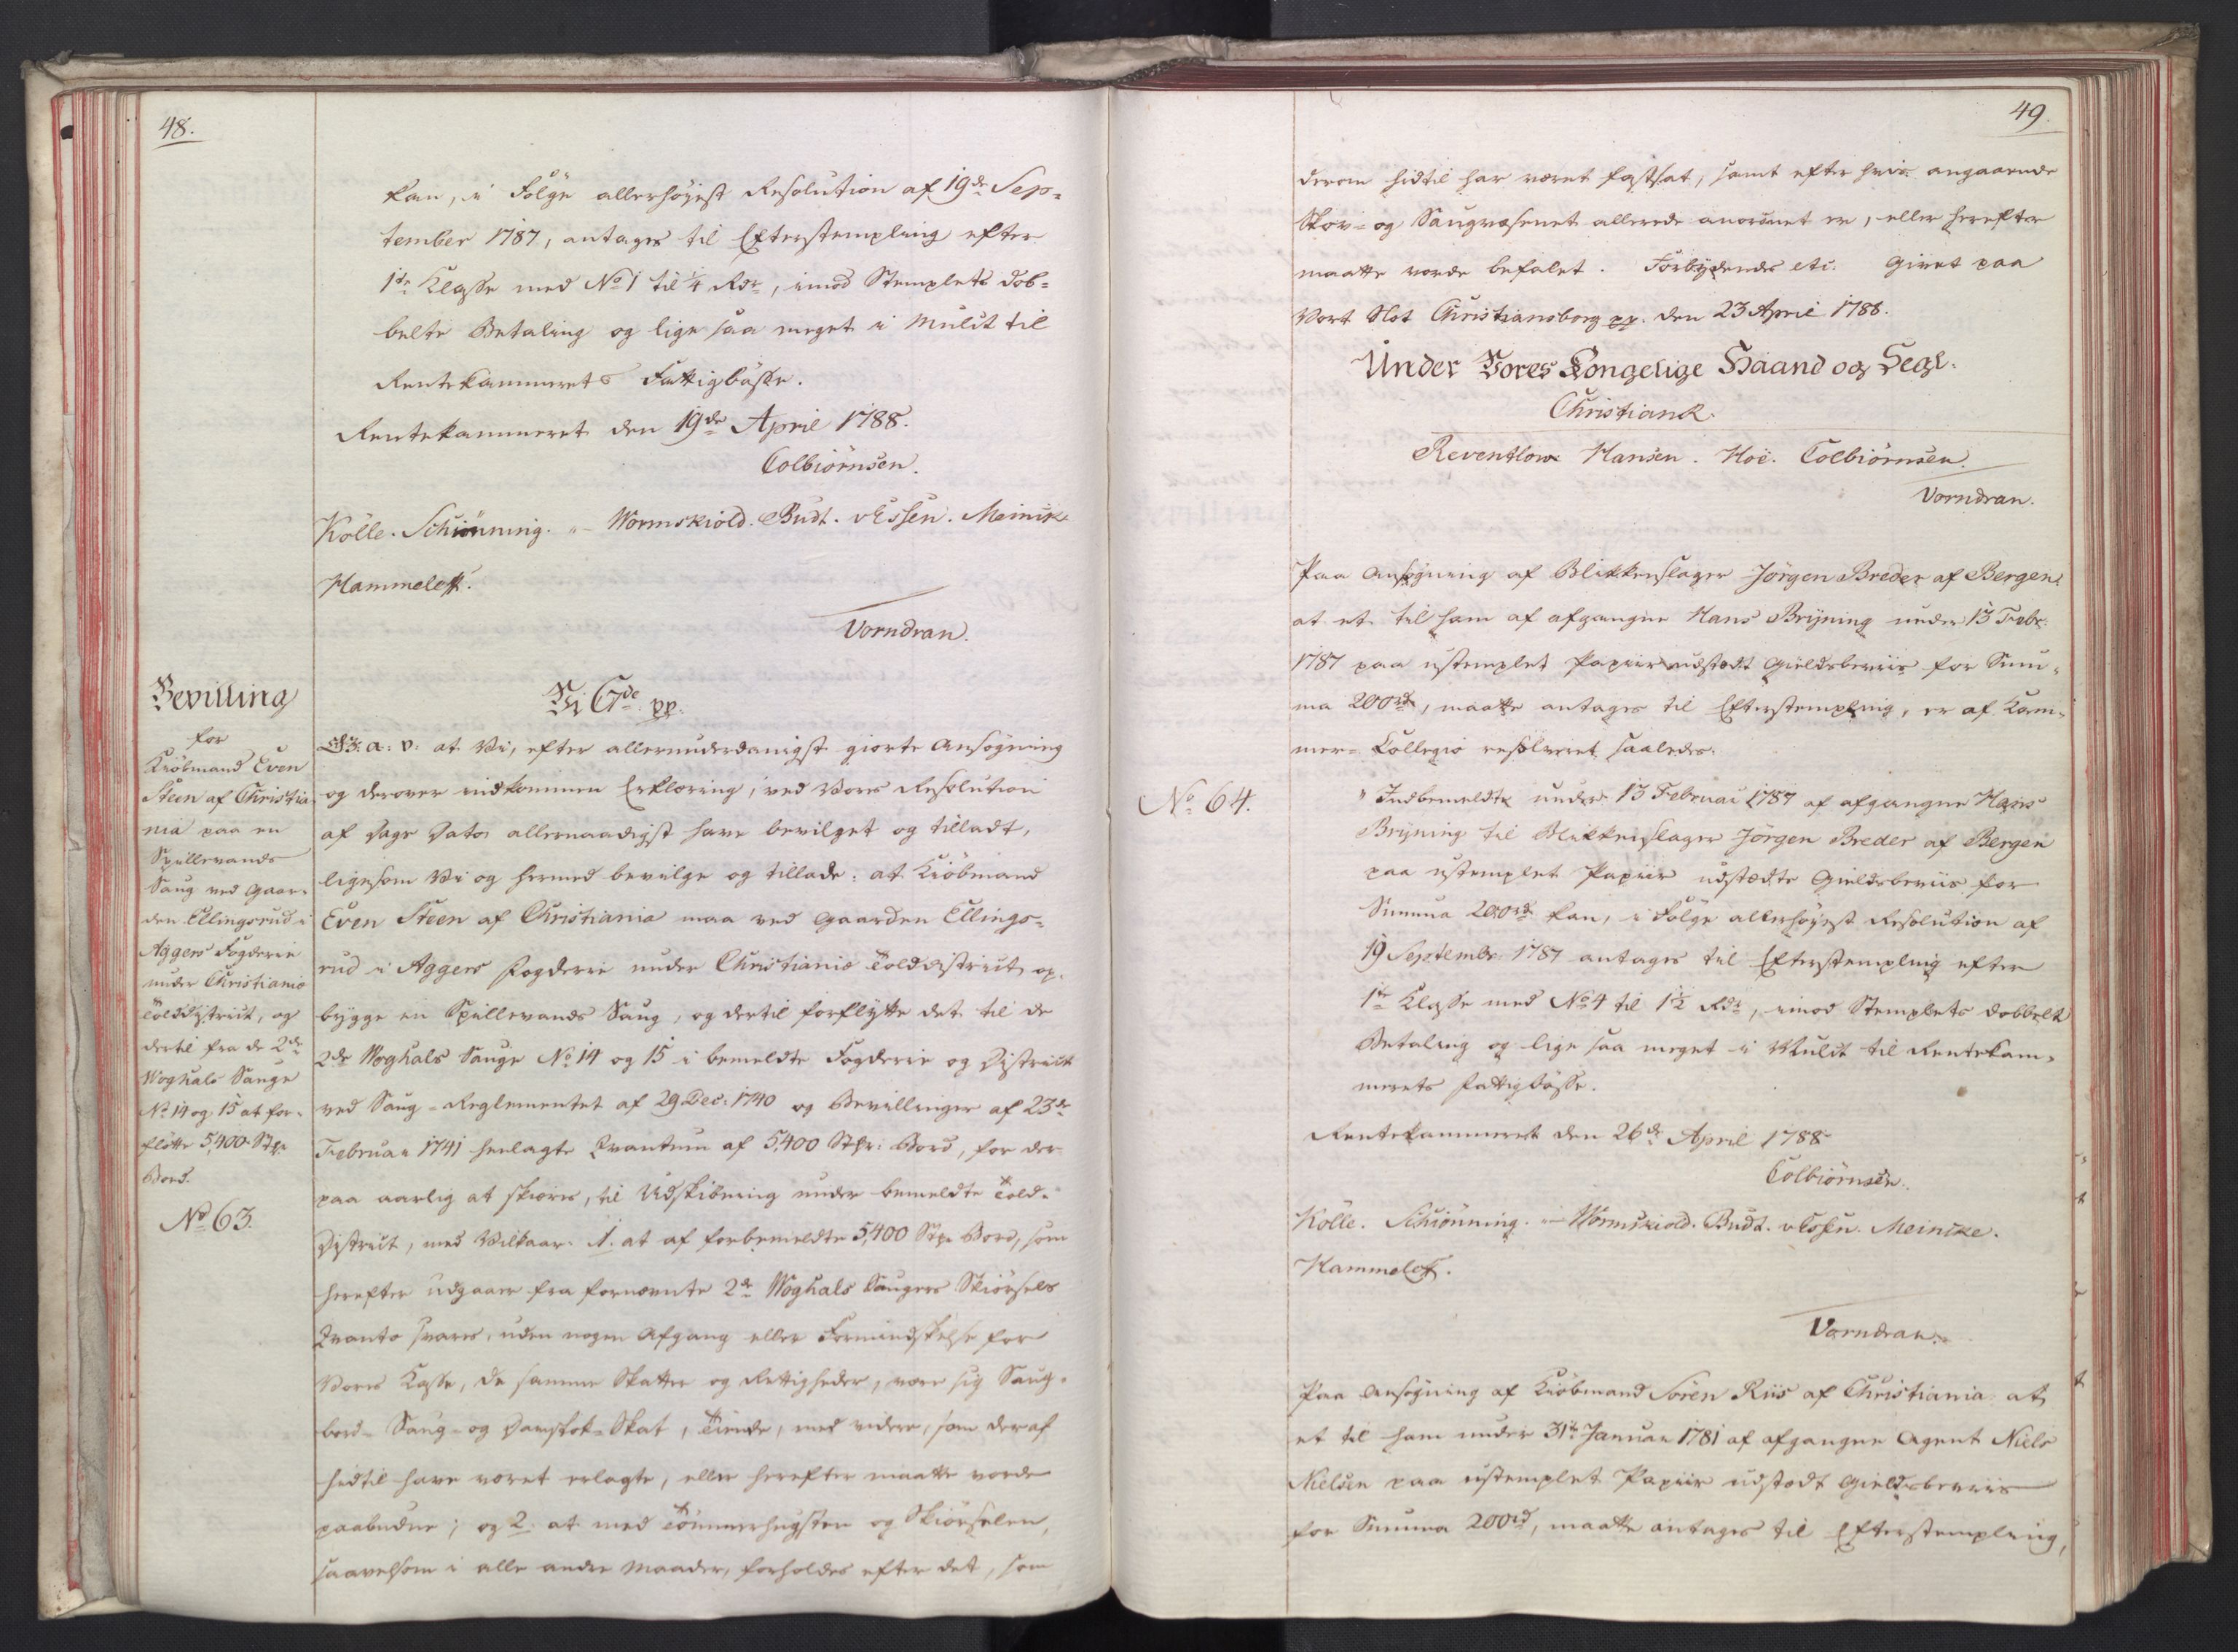 48.
kan, i Følge allerhøyest Resolution af 19de Sep-
tember 1787, antages til Efterstempling efter
1te Klasse med No 1 til 1/4 Rdr, imod Stemplets dob-
belte Betaling og lige saa meget i Mulct til
Rentekammerets Fattigbøsse.
Rentekammeret den 19de April 1788.
Colbiørnsen.
Kölle. Schiönning. „ – Wormskiold. Budt. v Essen. Meincke
Hammeleff.
Vorndran.
Bevilling
for
Kiöbmand Even
Steen af Christia
nia paa en
Spillevands
Saug ved Gaar-
den Ellingsrud i
Aggers Fogderie
under Christiania
Tolddistrict, og
dertil fra de 2de
Woghals Sauge
No 14 og 15 at for-
flötte 5,400 Stkr
Bord.
No 63.
Vi C 7de pp.
G: a: v: at Vi, efter allerunderdanigst giorte Ansøgning
og derover indkommen Erklæring, ved Vores Resolution
af Dags Dato allernaadigst have bevilget og tilladt,
ligesom Vi og hermed bevilge og tillade: at Kiöbmand
Even Steen af Christiania maa ved Gaarden Ellings-
rud i Aggers Fogderie under Christianiæ Tolddistrict op-
bygge en Spillevands Saug, og dertil forflytte det til de
2de Woghals Sauge No 14 og 15 i bemeldte Fogderie og District
ved Saug-Reglementet af 29 Dec: 1740 og Bevillinger af 23de
Februar 1741 henlagte Qvantum af 5,400 Stkr: Bord, for der-
paa aarlig at skiæres, til Udskibning under bemeldte Told-
District, med Vilkaar: 1. at af forbemeldte 5,400 Stkr Bord, som
herefter udgaaer fra fornævnte 2de Woghals Saugers Skiørsels
Qvanto svares, uden nogen Afgang eller Formindskelse for
Vores Casse, de samme Skatter og Rettigheder, være sig Saug-
bord- Saug- og Damstok-Skat, Tiende, med videre, som deraf
hidtil have været erlagte, eller herefter maatte vorde
paabudne; og 2. at med Tømmerhugsten og Skiørselen,
saavelsom i alle andre Maader, forholdes efter det, som
49.
derom hidtil har været fastsat, samt efter hvis angaaende
Skov- og Saugvæsenet allerede anordnet er, eller herefter
maatte vorde befalet. Forbydende etc. Givet paa
Vort Slot Christiansborg pp. den 23 April 1788.
Under Vores Kongelige Haand og Segl.
Christian R.
Reventlow Hansen. Hoë. Colbiørnsen.
Vorndran.
Paa Ansøgning af Blikkenslager Jörgen Breder af Bergen:
at et til ham af afgangne Hans Bryning under 13 Febr:
1787 paa ustemplet Papiir udstædt Gieldsbeviis for Sum-
ma 200rd, maatte antages til Efterstempling, er af Kam-
mer-Collegio resolveret saaledes:
No 64.
" Indbemeldte under 13 Februar 1787 af afgangne Hans
Bryning til Blikkenslager Jörgen Breder af Bergen
paa ustemplet Papiir udstædte Gieldsbeviis for
Summa 200rd kan, i Følge allerhøyest Resolution af
19 Septembr: 1787 antages til Efterstempling efter
1te Klasse med No 4 til 1 1/2 Rdr, imod Stemplets dobbelt
Betaling og lige saa meget i Mulct til Rentekam-
merets Fattigbøsse.
Rentekammeret den 26de April 1788
Colbiørnsen.
Kölle. Schiönning. „ – Wormskiold. Budt. v Essen. Meincke.
Hammeleff.
Vorndran.
Paa Ansøgning af Kiöbmand Sören Riis af Christiania: at
et til ham under 31te Januar 1781 af afgangne Agent Niels
Nielsen paa ustemplet Papiir udstædt Gieldsbeviis
for Summa 200rd, maatte antages til Efterstempling,